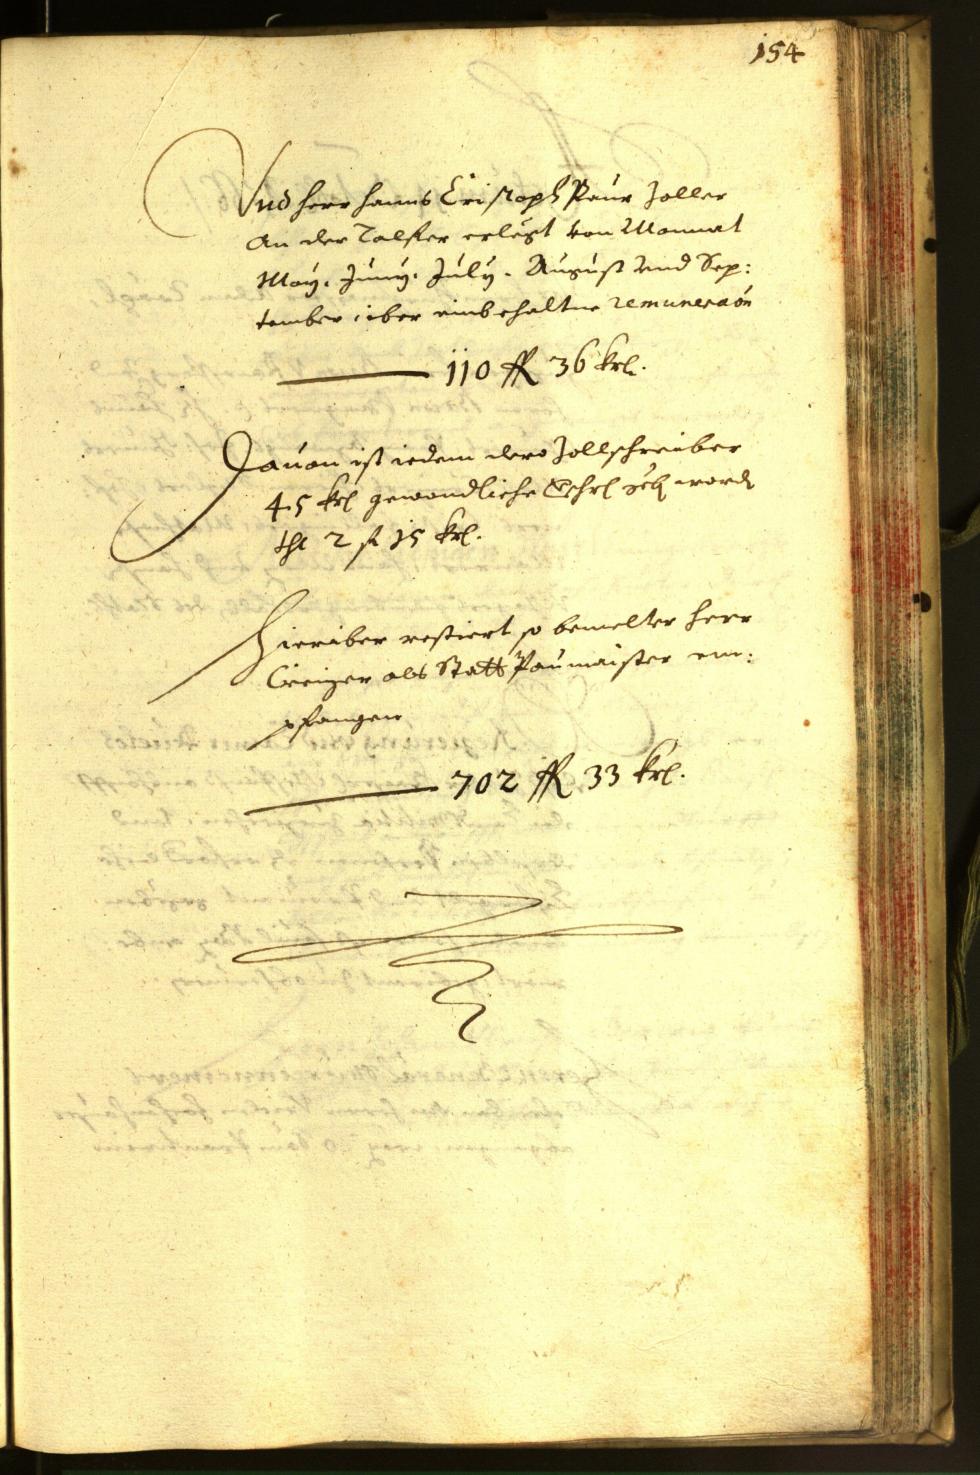 154
Vnd herr Hanns Cristoph Paur Zoller
an der Talfer erlegt von Monnat
May. Juny. July. August vnd Sep:
tember iber einbehaltne remuneraōn
110 fl 36 krl.
Dauon ist iedem dero Zollschreiber
45 krl gewondliche worden
tht 2 fl 15 krl.
Hieriber restiert so bemelter herr
als Statt Paumaister em:
pfangen
702 fl 33 krl.